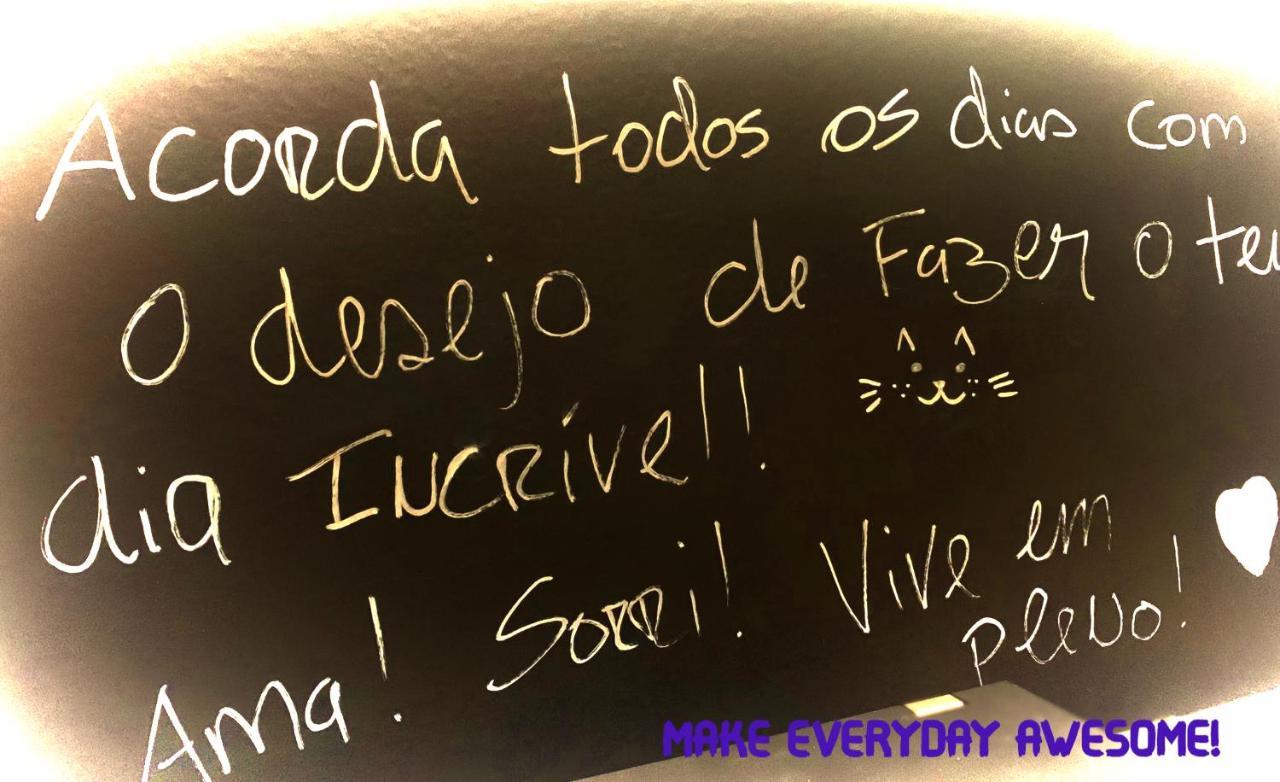 Acorda todos os dias com
o desejo de Fazer o teu
dia INCRÍvel!!
Ama! Sorri! Vive em
pleno!
MAKE EVERYDAY AWESOME!